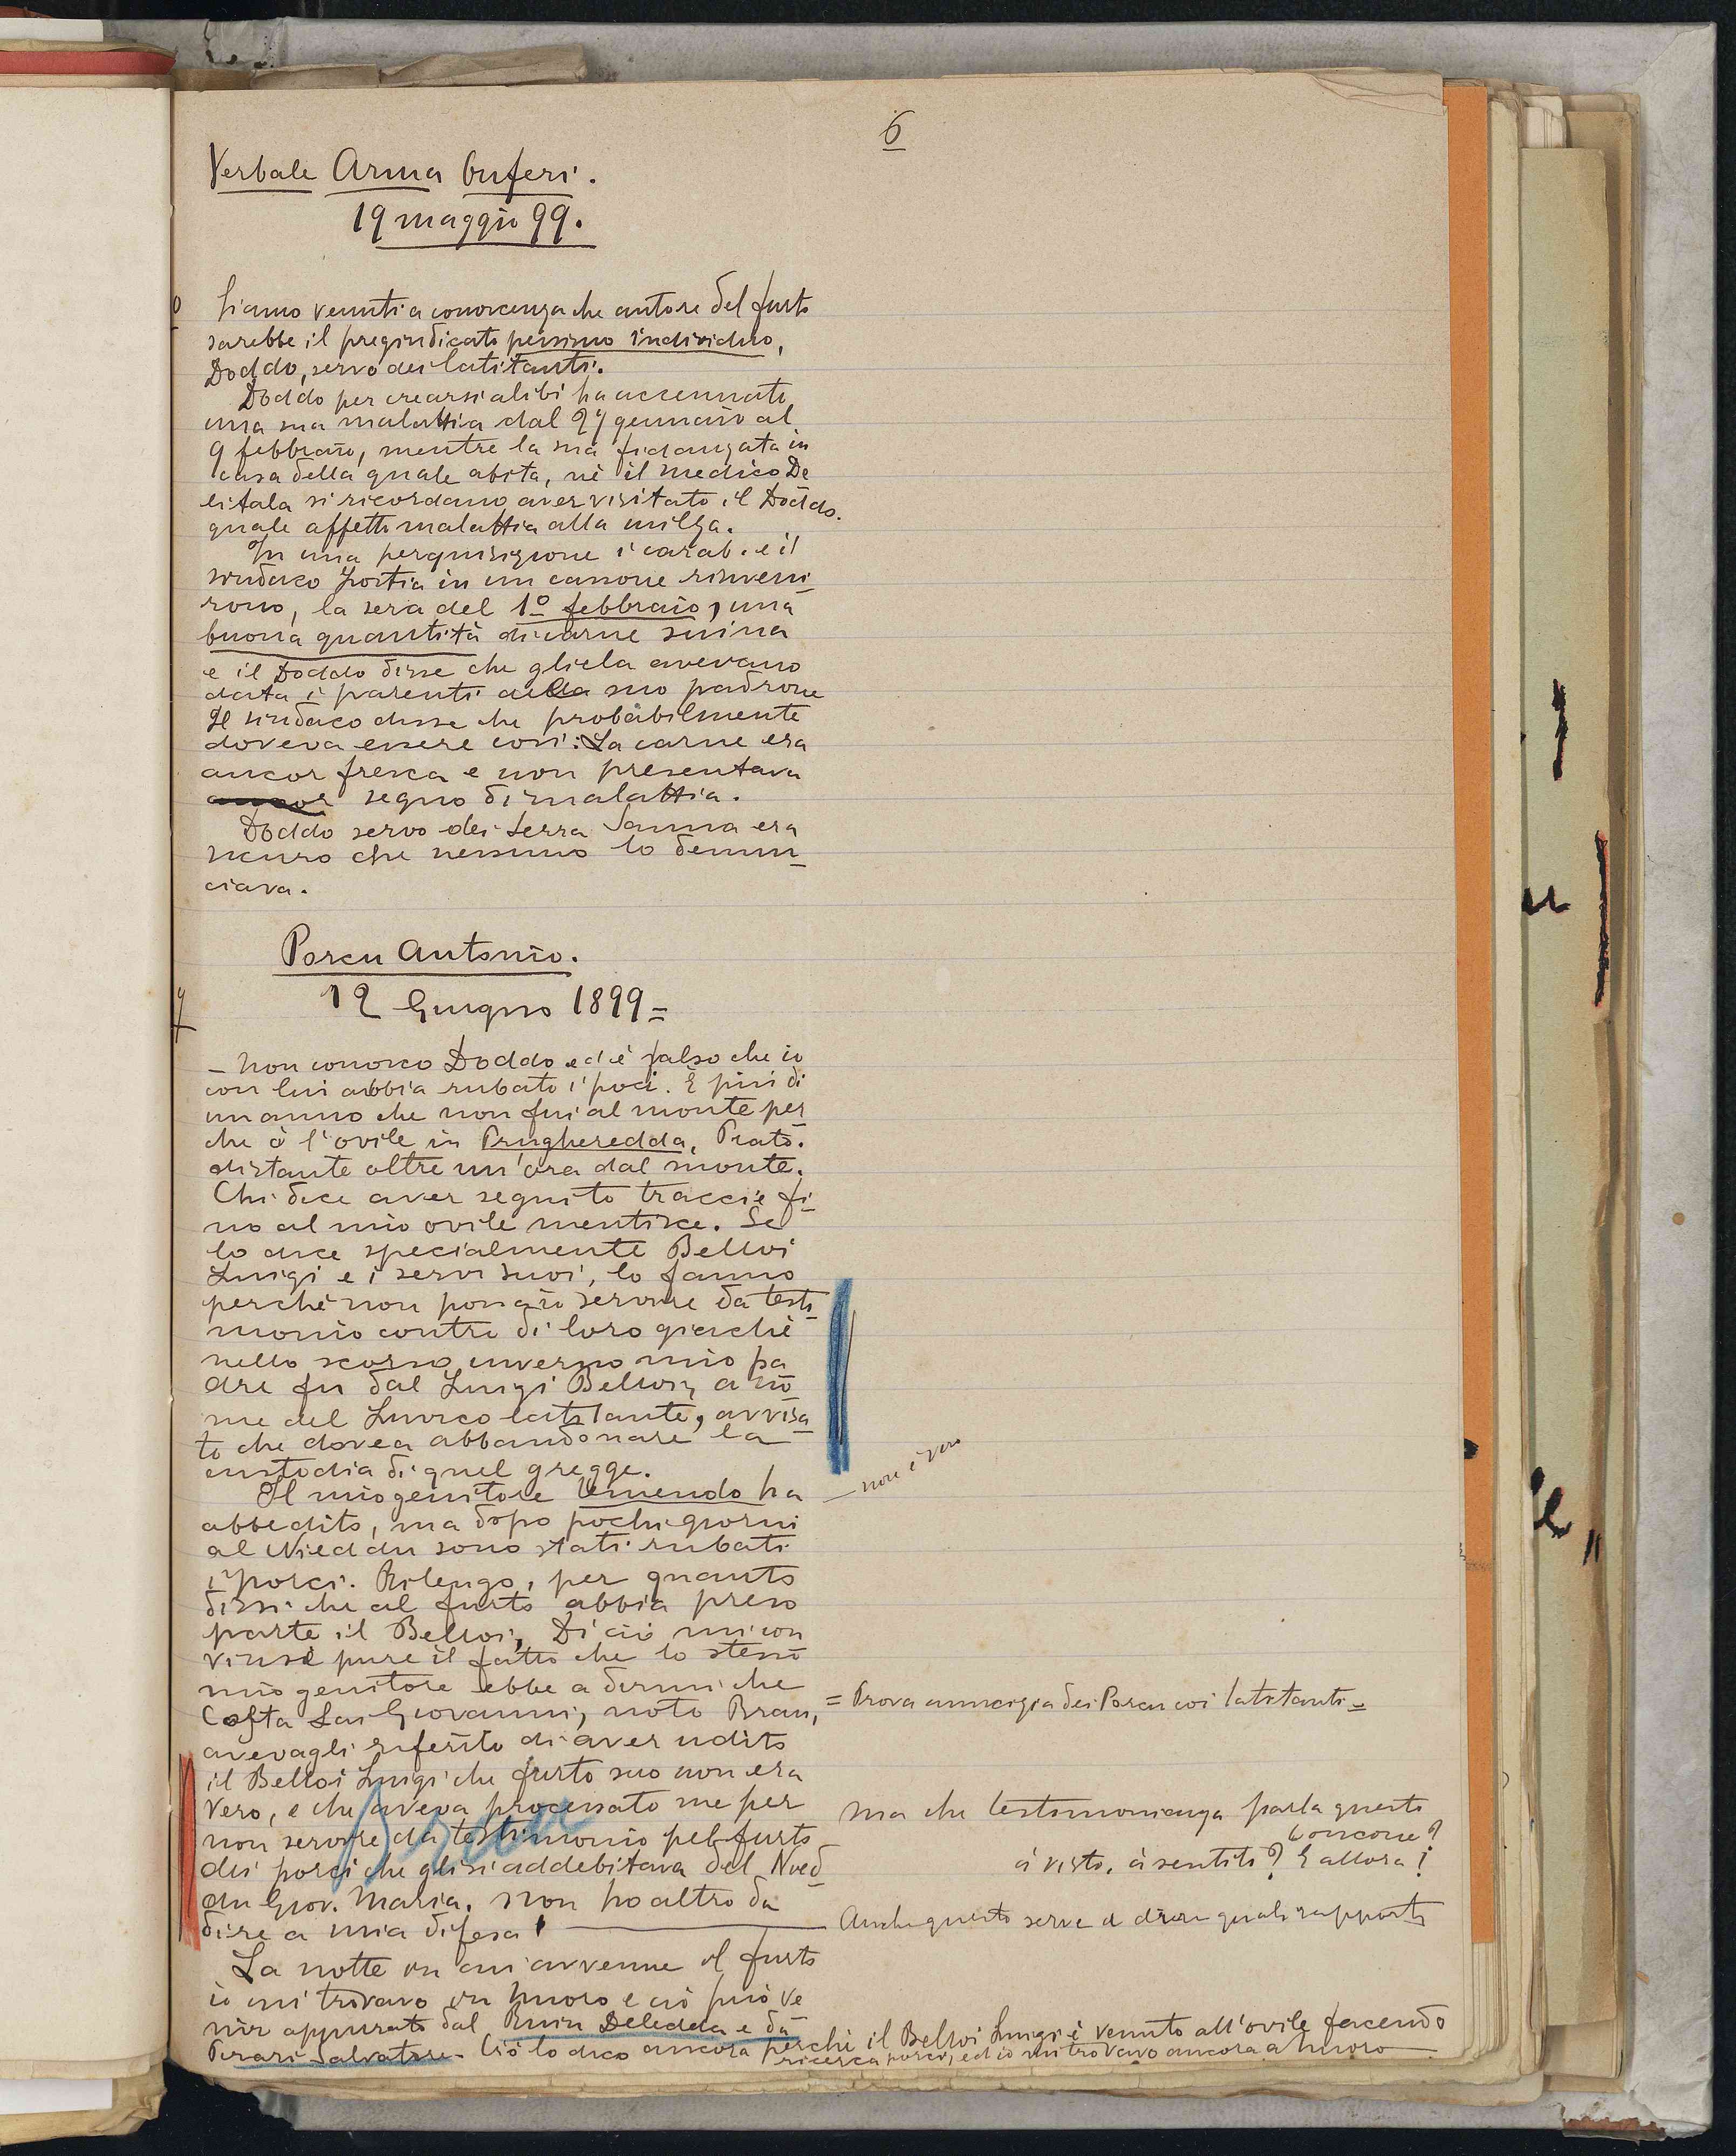 6
Verbale Arma Onferi.
19 maggio 99.
Siamo venuti a conoscenza che autore del furto
sarebbe il pregiudicato pessimo individuo,
Doddo, servo dei latitanti.
Doddo per crearsi alibi ha accennato
una sua malattia dal 27 gennaio al
9 febbraio, mentre la sua fidanzata in
casa della quale abita, nè il medico De
litala si ricordano aver visitato il Doddo.
quale affetto malattia alla milza.
In una perquisizione i carab. e il
sindaco Fortia in un cassone rinveni
rono, la sera del 1º febbraio, una
buona quantità di carne suina
e il Doddo disse che gliela avevano
data i parenti del suo padrone
Il sindaco disse che probabilmente
doveva essere così: La carne era
ancor fresca e non presentava
segno di malattia.
Doddo servo dei Serra Sanna era
sicuro che nessuno lo denun-
ciava.
Porcu Antonio.
12 Giugno 1899=
- Non conosco Doddo ed è falso che io
con lui abbia rubato i poci. È più di
un anno che non fui al monte per-
che ò l'ovile in Prugheredda, Prato.
distante oltre un'ora dal monte.
Chi dice aver seguito traccie fi-
no al mio ovile mentisce. Se
lo dice specialmente Belloi
Luigi e i servi suoi, lo fanno
perchè non possa io servire da testi-
monio contro di loro giacchè
nello scorso inverno mio pa
dre fu dal Luigi Belloi, a no-
me del Lovico latitante, avvisa-
to che dovea abbandonare la
custodia di quel gregge.
Il mio genitore temendo ha
abbedito, ma dopo pochi giorni
al Nieddu sono stati rubati
i porci. Ritengo, per quanto
dissi che al furto abbia preso
parte il Belloi, Di ciò mi con
vinse pure il fatto che lo stesso
mio genitore ebbe a dirmi che
Costa Lai Giovanni, noto Brau,
avevagli riferito di aver udito
il Belloi Luigi che furto suo non era
vero, e che aveva processato me per
non servire da testimonio pel furto
dei porci che gli si addebitava dal Nied-
du Giov. Maria. Non ho altro da
dire a mia difesa!
La notte in cui avvenne il furto
io mi trovavo in Nuoro e ciò può ve
nir appurato dal Ruiu Deledda e da
Pirari Salvatore. Ciò lo dico ancora perchè il Belloi Luigi è venuto all'ovile facendo
ricerca porci, ed io mi trovavo ancora a Nuoro
— non è vero
= Prova amicizia dei Porcu coi latitanti =
Ma che testimonianza parla questo
concone?
à visto, à sentito? E allora!
Anche questo serve a dire quali rapporti